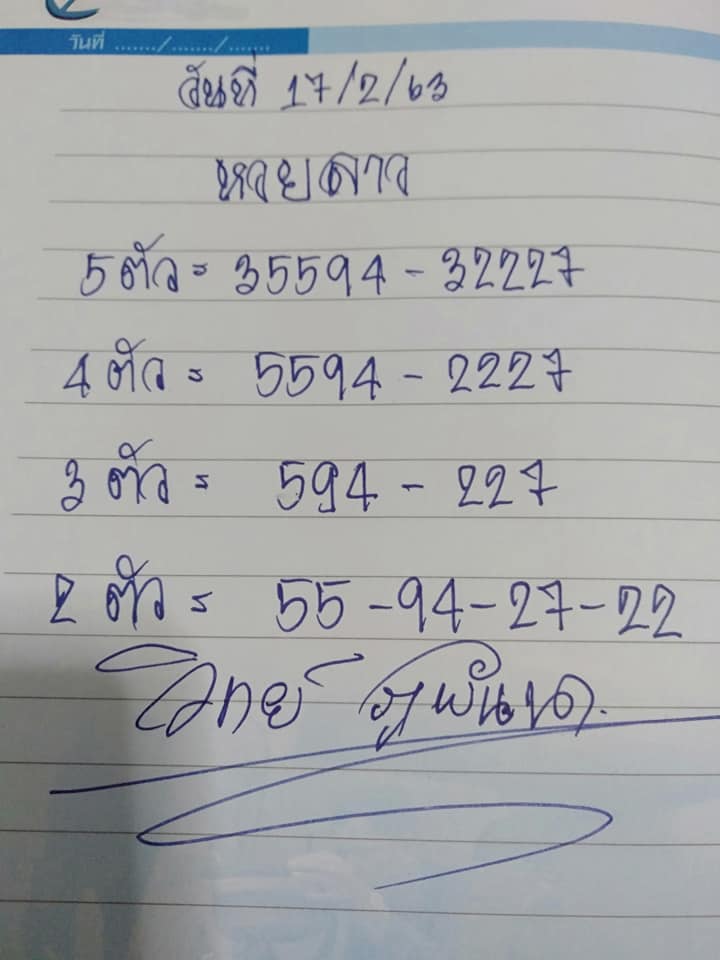 วันที่ ....../....../......
วันที่ 17/2/63
หวยลาว
5 ตัว = 35594 - 32227
4 ตัว = 5594 - 2227
3 ตัว = 594 - 227
2 ตัว = 55 - 94 - 27 - 22